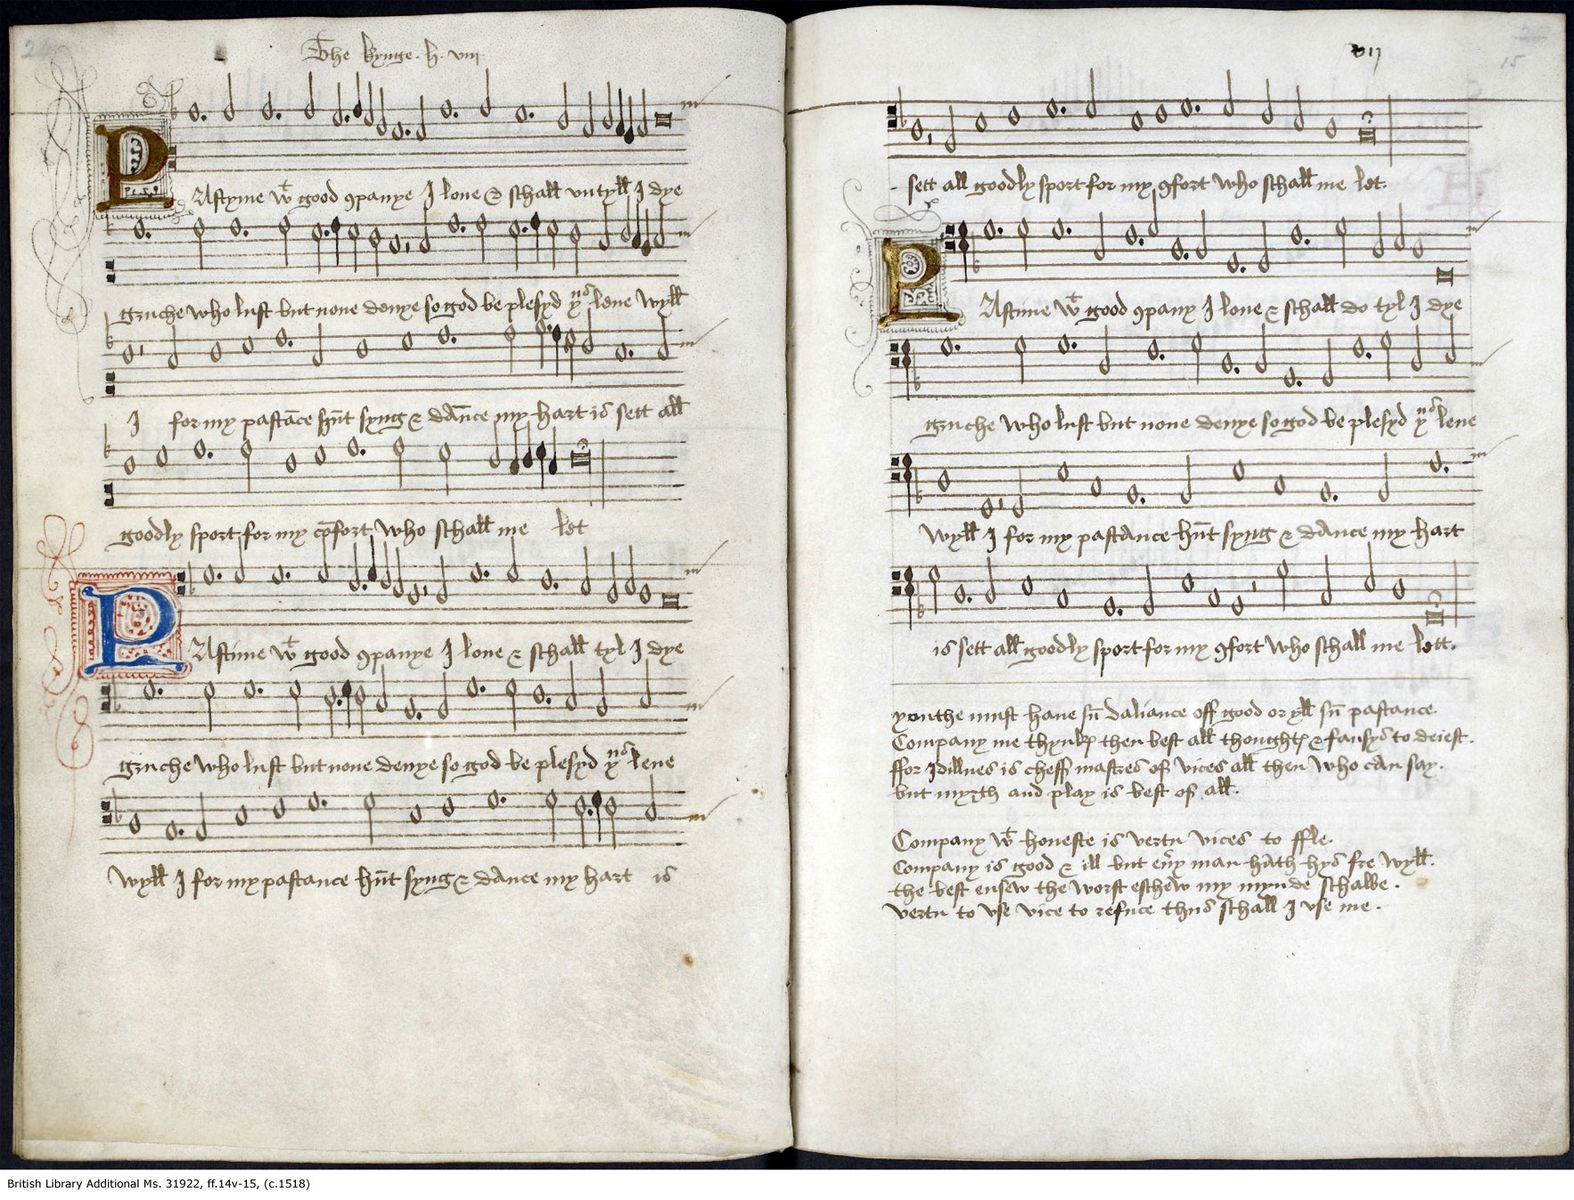 The kynge .h. viii
PAstyme wt good ꝯpanye I loue & schall vntyll I dye
gruche who lust but none denye so god be plesyd yus leue wyll
I for my pastāce hūt syng & dāuce my hart is sett all
goodly sport for my cōfort who schall me let
PAstime wt good ꝯpanye I loue & schall tyl I dye
gruche who lust but none denye so god be plesyd yus leue
wyll I for my pastance hūt syng & dance my hart is
sett all goodly sport for my ꝯfort who schall me let.
PAstime wt good ꝯpany I loue & schall do tyl I dye
gruche who lust but none denye so god be plesyd yus leue
wyll I for my pastance hūt syng & dance my hart
is sett all goodly sport for my ꝯfort who schall me lett.
youthe must haue sū daliance off good or yll sū pastance.
Company me thynkꝭ then best all thoughtꝭ & fansys to deiest.
ffor Idillnes is cheff mastres of vices all then who can say.
but myrth and play is best of all.
Company wt honeste is vertu vices to ffle.
Company is good & ill but eu̾y man hath hys fre wyll.
the best ensew the worst eschew my mynde schalbe.
vertu to vse vice to refuce thus schall I vse me.
15
British Library Additional Ms. 31922, ff.14v-15, (c.1518)